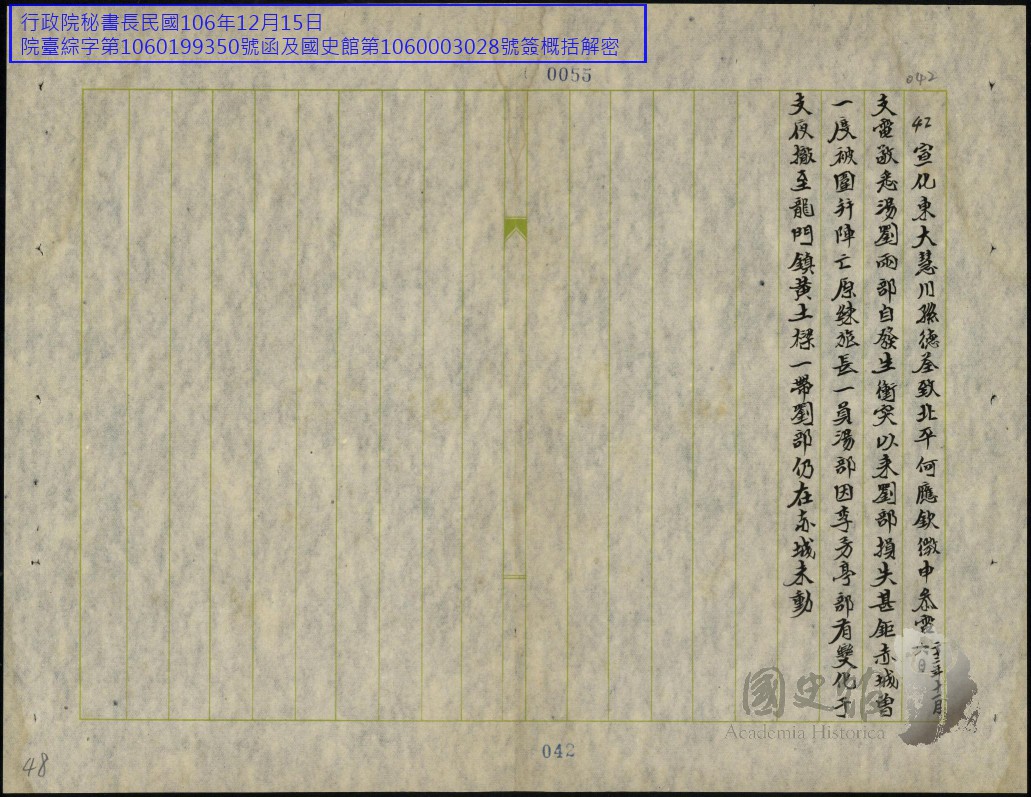 行政院秘書長民國106年12月15日
院臺綜字第1060199350號函及國史館第1060003028號簽概括解密
0055
042
42 宣化東大慧川孫德荃致北平何應欽微申叅電
二十二年十二月六日
支電敬悉湯劉兩部自發生衝突以來劉部損失甚鉅赤城曾
一度被圍并陣亡原練旅長一員湯部因李芳亭部有變化于
支夜撤至龍門鎮黄土樑一帶劉部仍在赤城未動
國史館
Academia Historica
042
48